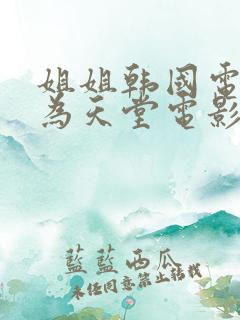 姐姐韩國電
為天堂電影
藍藍西瓜
未任同意禁止转载